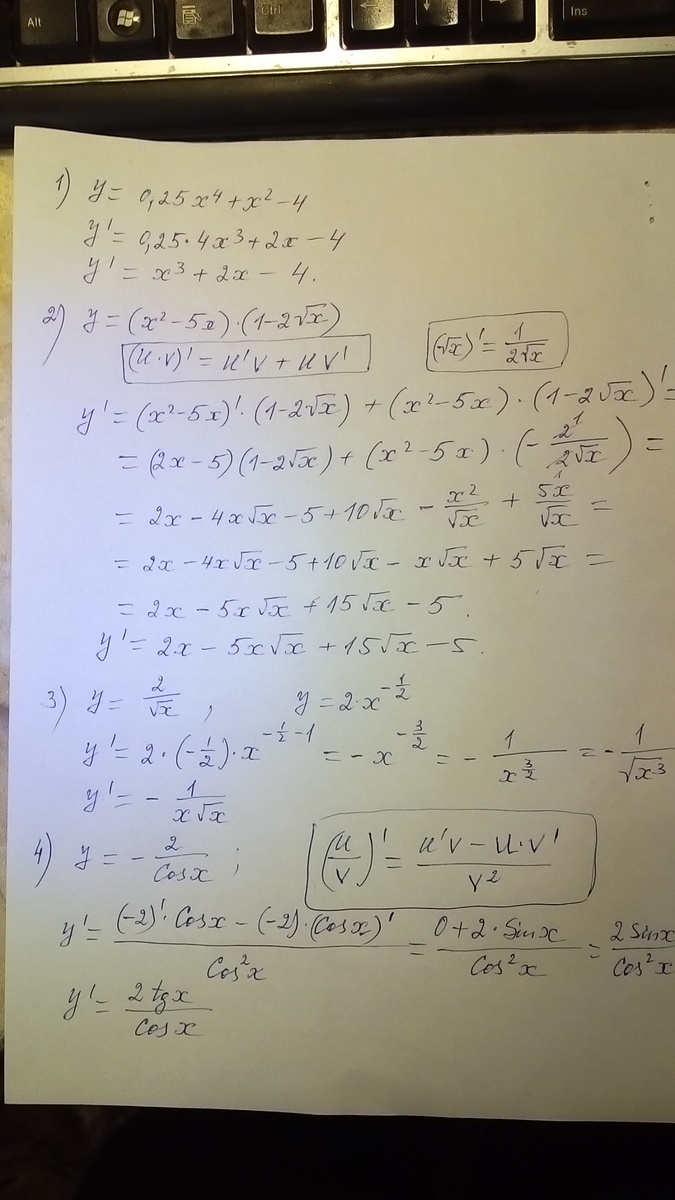 Alt
Ctrl
Ins
1) y = 0,25x⁴ + x² - 4
y' = 0,25·4x³ + 2x - 4
y' = x³ + 2x - 4.
2) y = (x² - 5x)·(1 - 2√x)
(u·v)' = u'v + uv' (√x)' = 1/(2√x)
y' = (x² - 5x)'·(1 - 2√x) + (x² - 5x)·(1 - 2√x)' =
= (2x - 5)(1 - 2√x) + (x² - 5x)·(- 2¹/(2₁√x)) =
= 2x - 4x√x - 5 + 10√x - x²/√x + 5x/√x =
= 2x - 4x√x - 5 + 10√x - x√x + 5√x =
= 2x - 5x√x + 15√x - 5.
y' = 2x - 5x√x + 15√x - 5.
3) y = 2/√x , y = 2·x^(-1/2)
y' = 2·(-1/2)·x^(-1/2 - 1) = - x^(-3/2) = - 1/x^(3/2) = - 1/√x³
y' = - 1/(x√x)
4) y = - 2/Cosx ; (u/v)' = (u'v - u·v')/v²
y' = ((-2)'·Cosx - (-2)·(Cosx)')/Cos²x = (0 + 2·Sinx)/Cos²x = 2Sinx/Cos²x
y' = 2tgx/Cosx